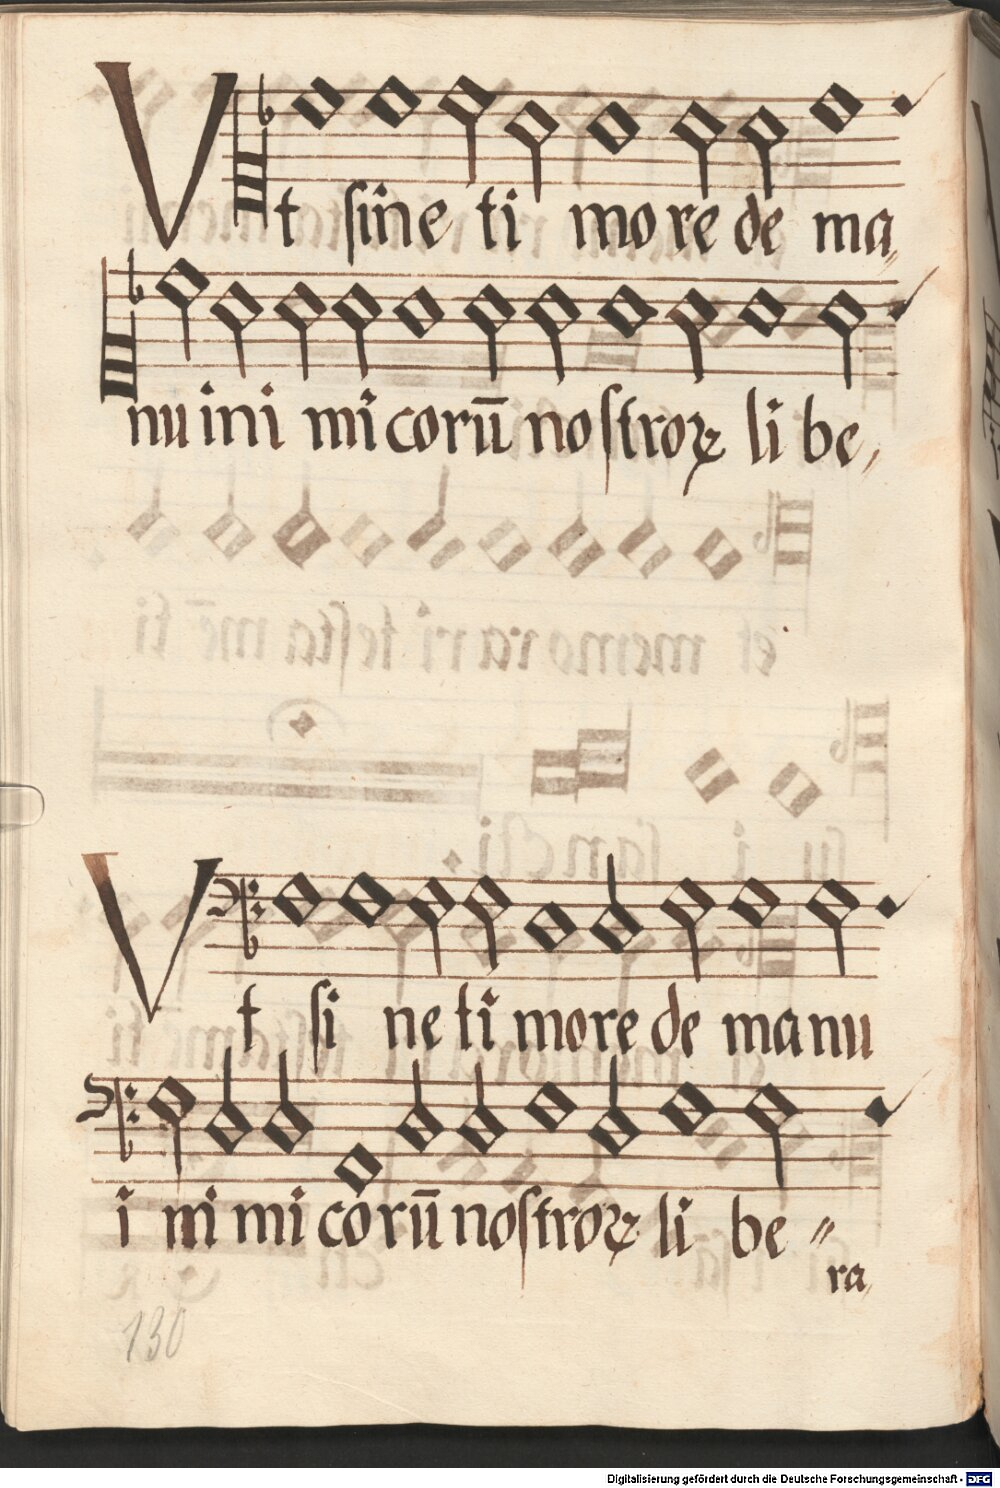 Vt sine ti more de ma
nu ini mi corū nostroꝝ li be
Vt si ne ti more de manu
i ni mi corū nostroꝝ li be
ra
130
Digitalisierung gefördert durch die Deutsche Forschungsgemeinschaft - DFG